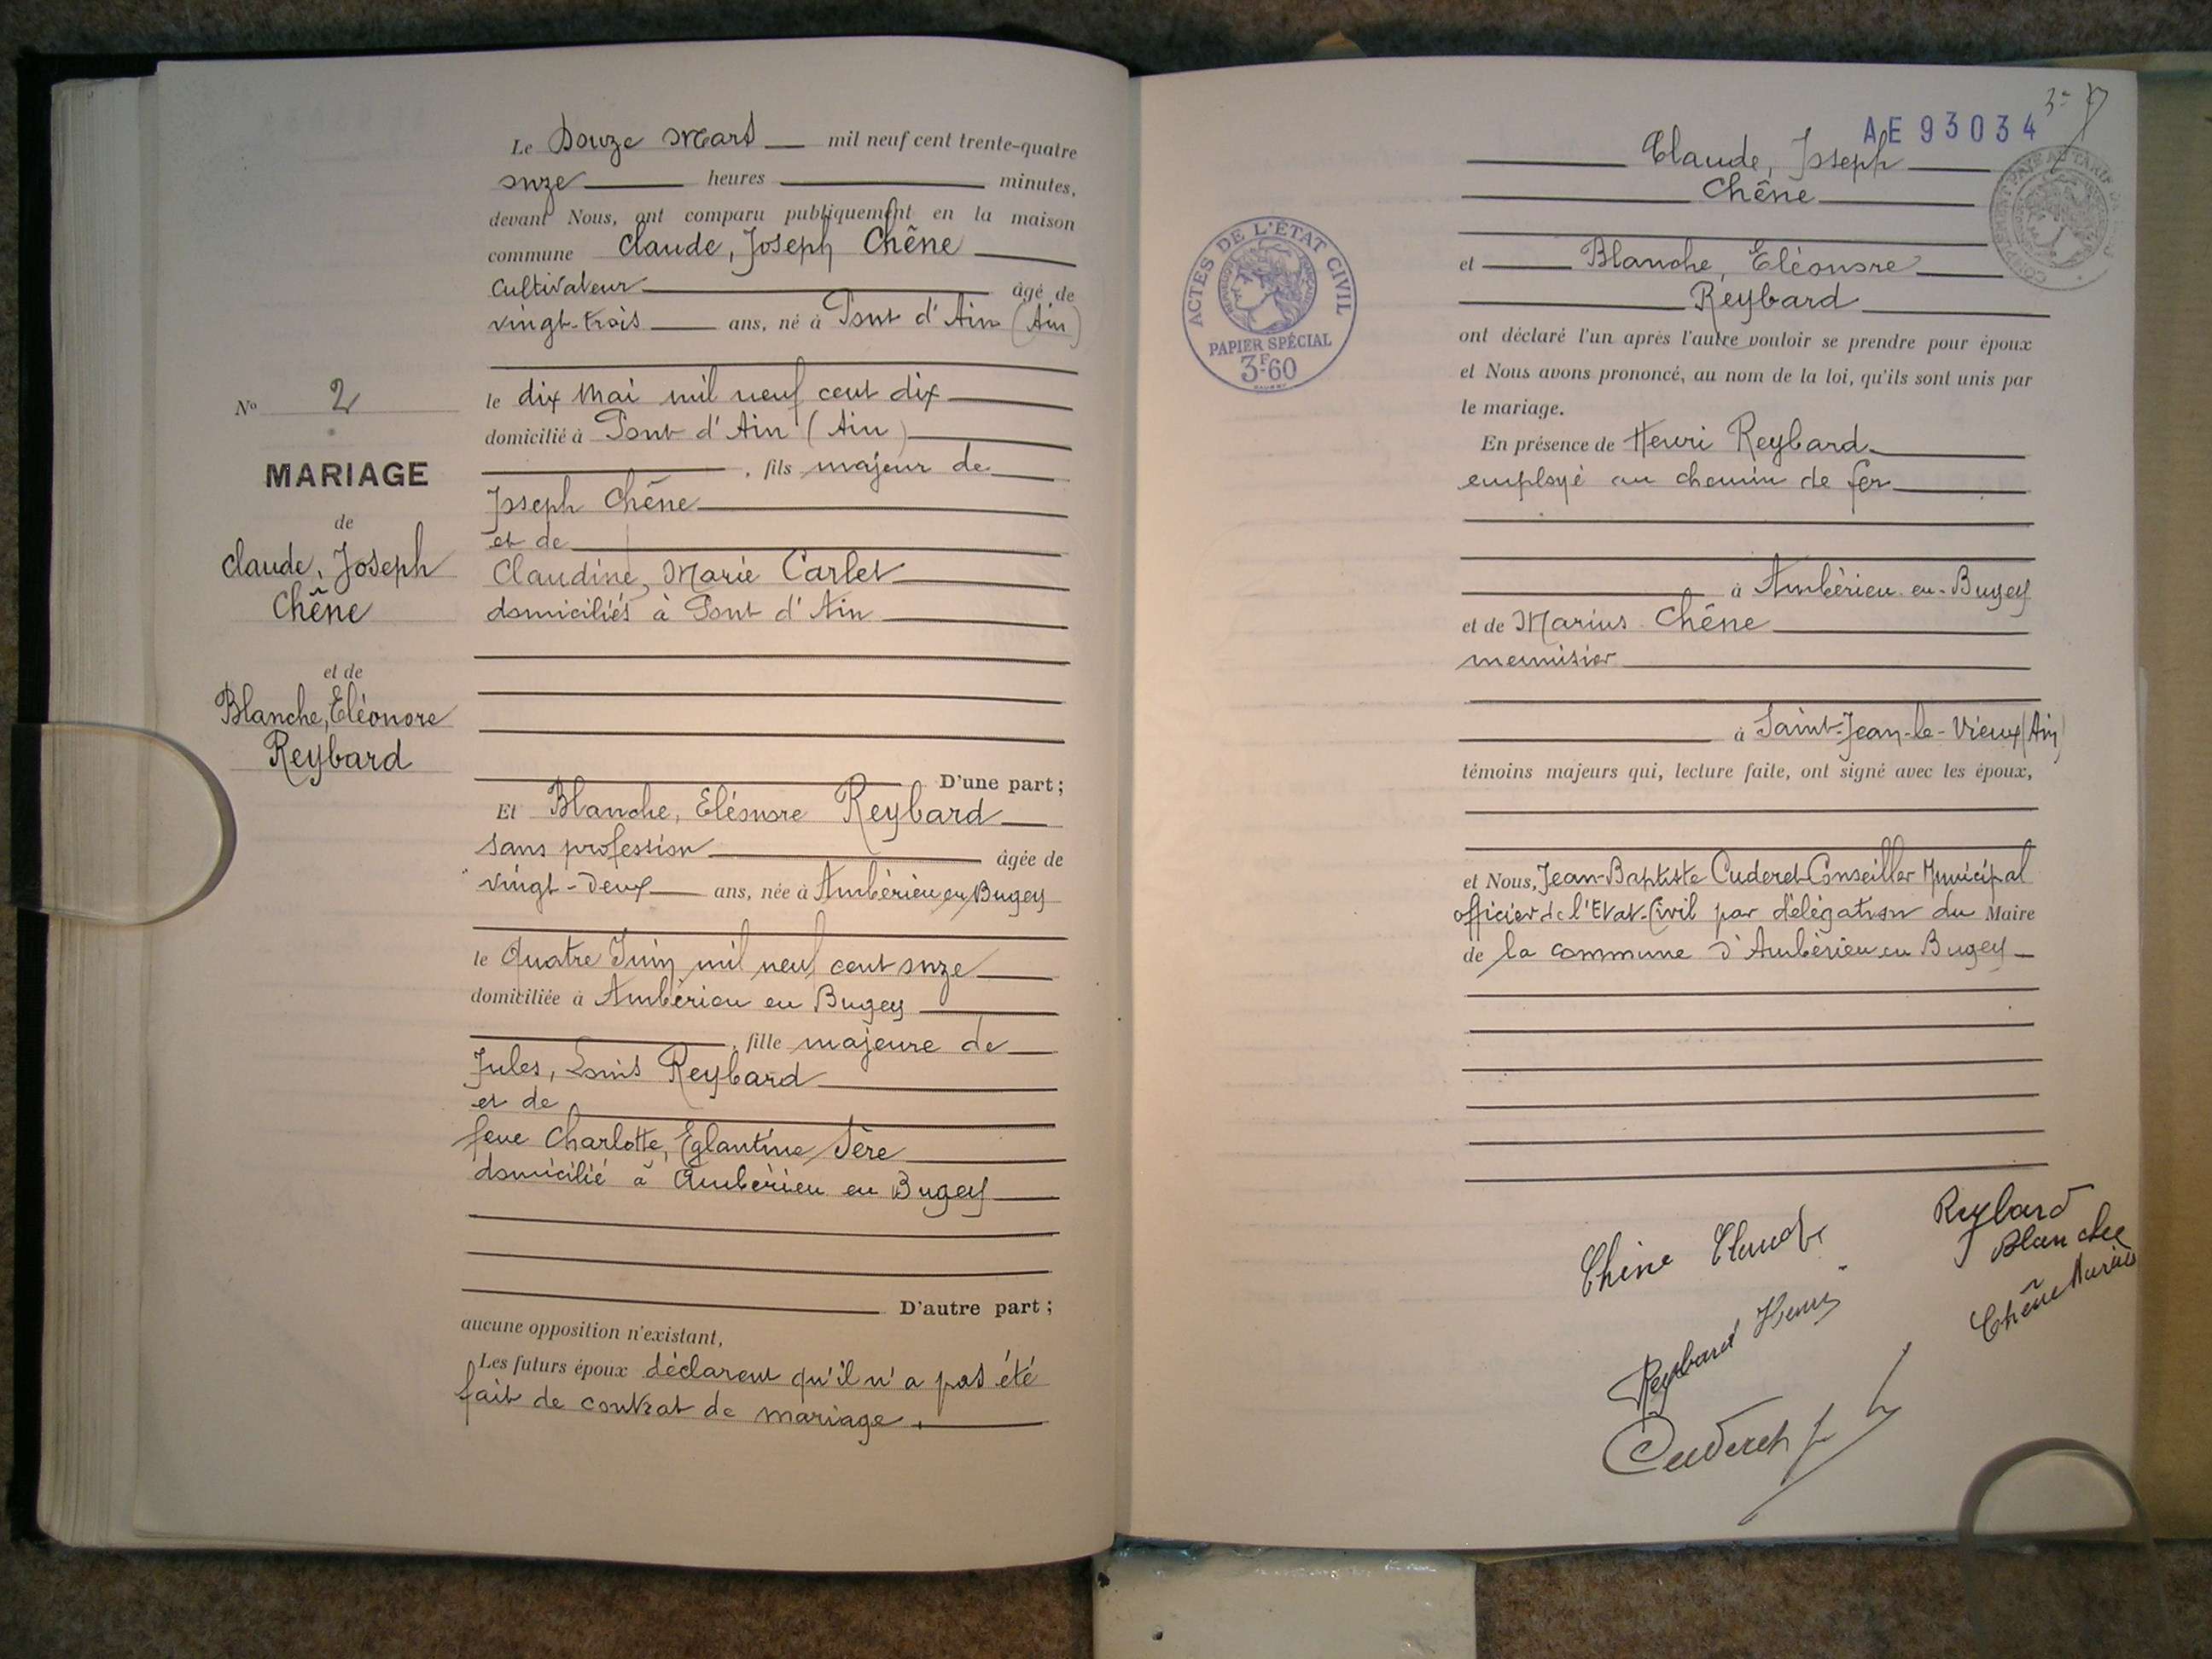 Le Douze Mars mil neuf cent trente-quatre
onze heures minutes,
devant Nous, ont comparu publiquement en la maison
commune Claude, Joseph Chêne
cultivateur âgé de
vingt-trois ans, né à Pont d'Ain (Ain)
le dix Mai mil neuf cent dix
domicilié à Pont d'Ain (Ain)
, fils majeur de
Joseph Chêne
et de
Claudine, Marie Carlet
domiciliés à Pont d'Ain
D'une part ;
Et Blanche, Eléonore Reybard
sans profession âgée de
vingt-deux ans, née à Ambérieu en Bugey
le Quatre Juin mil neuf cent onze
domiciliée à Ambérieu en Bugey
, fille majeure de
Jules, Louis Reybard
et de
feue Charlotte, Eglantine
domicilié à Ambérieu en Bugey
D'autre part ;
aucune opposition n'existant,
Les futurs époux déclarent qu'il n'a pas été
fait de contrat de mariage.
No 2
MARIAGE
de
Claude, Joseph
Chêne
et de
Blanche, Eléonore
Reybard
AE 93034
Claude, Joseph
Chêne
et Blanche, Eléonore
Reybard
ont déclaré l'un après l'autre vouloir se prendre pour époux
et Nous avons prononcé, au nom de la loi, qu'ils sont unis par
le mariage.
En présence de Henri Reybard
employé au chemin de fer
à Ambérieu-en-Bugey
et de Marius Chêne
menuisier
à Saint-Jean-le-Vieux (Ain)
témoins majeurs qui, lecture faite, ont signé avec les époux,
et Nous, Jean-Baptiste Cuderet Conseiller Municipal
officier de l'Etat-Civil par délégation du Maire
de la commune d'Ambérieu en Bugey
ACTES DE L'ÉTAT CIVIL
RÉPUBLIQUE FRANÇAISE
PAPIER SPÉCIAL
3F.60
Chêne Claude
Reybard
Blanche
Reybard Henri
Chêne Marius
Cuderet